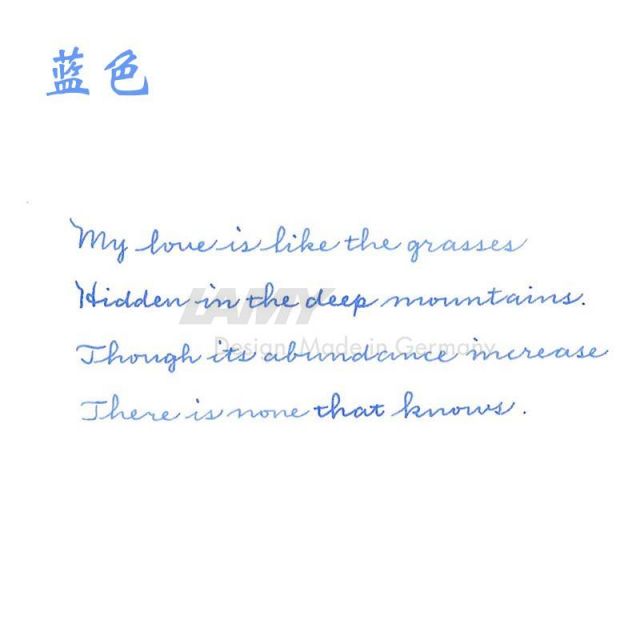 蓝色
My love is like the grasses
Hidden in the deep mountains.
LAMY
Design. Made in Germany
Though its abundance increase
There is none that knows.